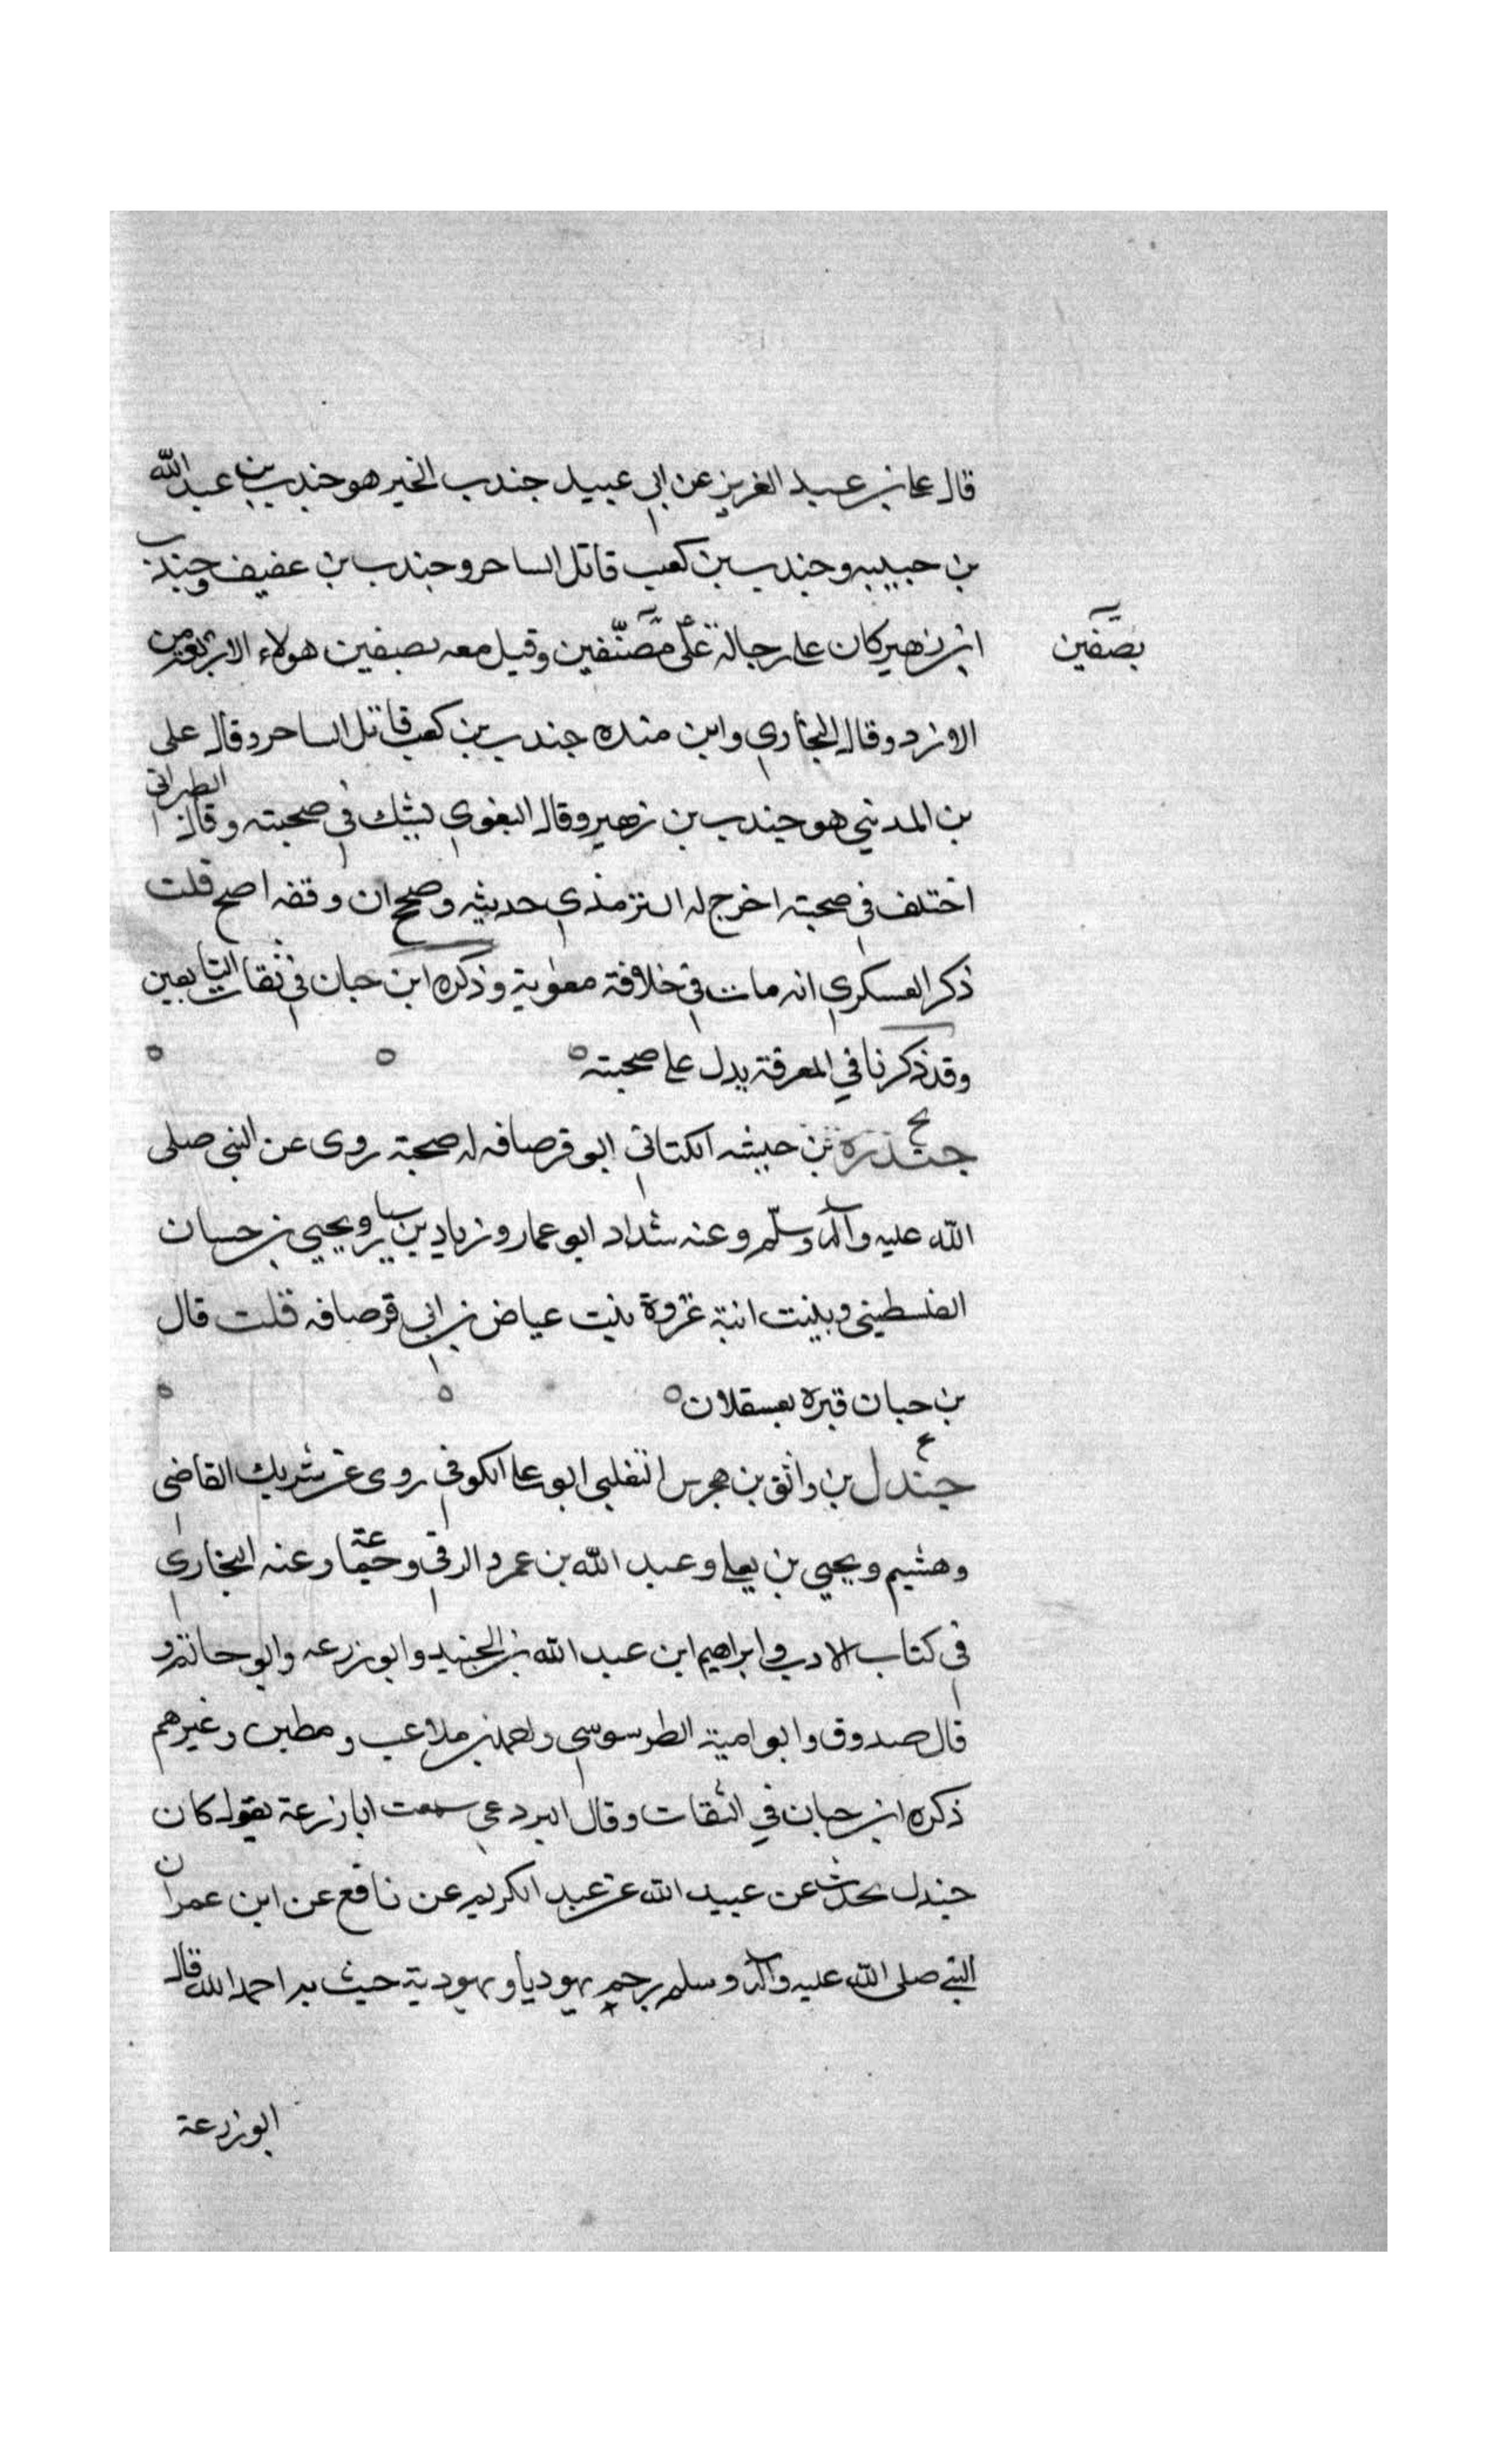 قال على بن عبد العزيز عن ابى عبيد جندب الخير هو جندب بن عبد الله
بن حبيبه و جندب بن كعب قاتل الساحر و جندب بن عفيف و جندب
ابن زهير كان على رجالة على مصنفين وقيل معه بصفين هولاء الاربعة من
بصفين
الازد وقال البخاري وابن منده جندب بن كعب قاتل الساحر وقال على
بن المديني هو جندب بن زهير وقال البغوي يشك في صحبته وقال الطبرانى
اختلف في صحبته اخرج له الترمذي حديثه وصحح ان وقفه اصح قلت
ذكر العسكري انه مات في خلافة معوية وذكره ابن حبان في ثقات التابعين
وقد ذكرنا في المعرفة يدل على صحبته
بخ
جندرة بن حبشه الكنانى ابو قرصافه له صحبة روى عن النبي صلى
الله عليه وآله وسلم وعنه شداد ابو عمار و زياد بن سيار و يحيى بن حسان
الفلسطيني وبنت ابنة غزوة بنت عياض بن ابى قرصافه قلت قال
بن حبان قبره بعسقلان
بخ
جندل بن واثق بن هجرس التغلبى ابو على الكوفي روى عن شريك القاضى
وهشيم و يحيى بن يعلى و عبد الله بن عمرو الرقي و جماعة وعنه البخاري
في كتاب الادب و ابراهيم ابن عبد الله بن الجنيد و ابو زرعه وابو حاتم و
قال صدوق و ابو امية الطرسوسي و احمد بن ملاعب و مطين و غيرهم
ذكره ابن حبان في الثقات وقال البردعي سمعت ابا زرعة يقول كان
جندل يحدث عن عبيد الله عن عبد الكريم عن نافع عن ابن عمر ان
النبي صلى الله عليه وآله وسلم رجم يهوديا و يهودية حيث احمد الله قال
ابو زرعة